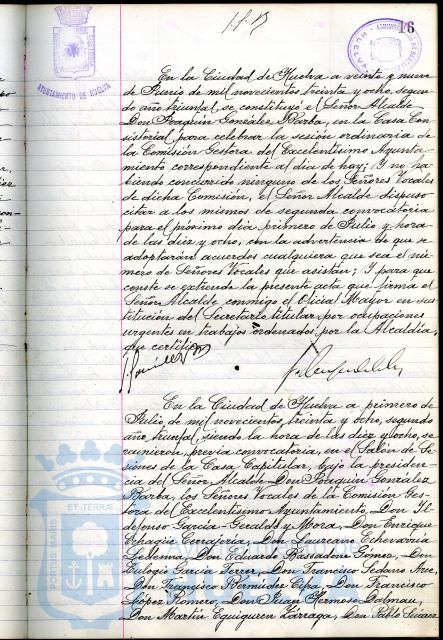 16
AYUNTAMIENTO DE HUELVA
En la Ciudad de Huelva a veinte y nueve
de Junio de mil novecientos treinta y ocho, segun-
do año triunfal, se constituyó el Señor Alcalde
Don Joaquín González Barba, en la Casa Con-
sistorial para celebrar la sesión ordinaria de
la Comisión Gestora del Excelentísimo Ayunta-
miento correspondiente al día de hoy; Y no ha-
biendo concurrido ninguno de los Señores Vocales
de dicha Comisión, el Señor Alcalde dispuso
citar a los mismos de segunda convocatoria
para el próximo día primero de Julio y hora
de las diez y ocho, con la advertencia de que se
adoptarán acuerdos cualquiera que sea el nú-
mero de Señores Vocales que asistan; Y para que
conste se extiende la presente acta que firma el
Señor Alcalde conmigo el Oficial Mayor en sus-
titución del Secretario titular por ocupaciones
urgentes en trabajos ordenados por la Alcaldía,
que certifico.
En la Ciudad de Huelva a primero de
Julio de mil novecientos treinta y ocho, segundo
año triunfal, siendo la hora de las diez y ocho, se
reunieron, previa convocatoria, en el Salón de Se-
siones de la Casa Capitular, bajo la presiden-
cia del Señor Alcalde Don Joaquín González
Barba, los Señores Vocales de la Comisión Ges-
tora del Excelentísimo Ayuntamiento, Don Il-
defonso García-Geraldes y Mora, Don Enrique
Orhagia Cerrajería, Don Laureano Echevarría
Ledesma, Don Eduardo Bassadone Gómez, Don
Eulogio García Terrer, Don Francisco Sedano Arce,
Don Francisco Bermúdez Cepa, Don Francisco
López Romero, Don Juan Hermoso Dolmau,
Don Martín Eguiguren Zárraga, Don Pablo Suárez
PORTUS MARIS ET TERRAE